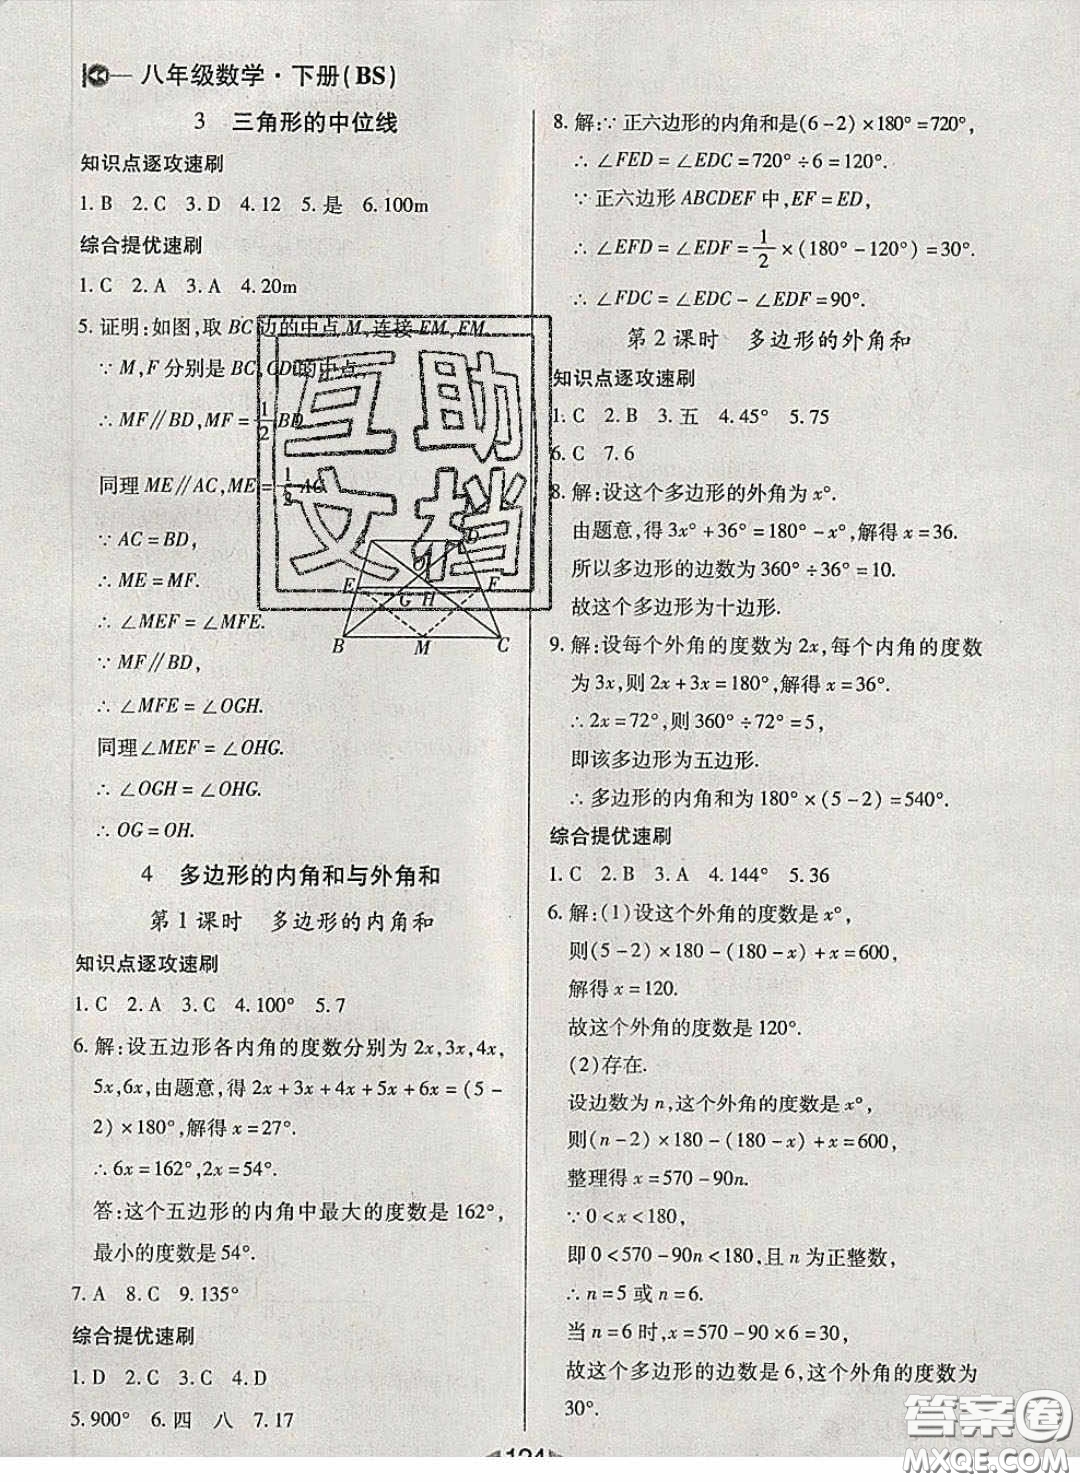 八年级数学·下册(BS)
3 三角形的中位线
知识点逐攻速刷
1. B 2. C 3. D 4. 12 5. 是 6. 100m
综合提优速刷
1. C 2. A 3. A 4. 20m
5. 证明:如图,取BC边的中点M,连接EM,FM.
∵ M,F分别是BC,CD的中点,
∴ MF∥BD,MF=1/2BD.
同理ME∥AC,ME=1/2AC.
∵ AC=BD,
∴ ME=MF.
∴ ∠MEF=∠MFE.
∵ MF∥BD,
∴ ∠MFE=∠OGH.
同理∠MEF=∠OHG.
∴ ∠OGH=∠OHG.
∴ OG=OH.
E F
G H
B M C
互助
文档
4 多边形的内角和与外角和
第1课时 多边形的内角和
知识点逐攻速刷
1. C 2. A 3. C 4. 100° 5. 7
6. 解:设五边形各内角的度数分别为2x,3x,4x,
5x,6x,由题意,得2x+3x+4x+5x+6x=(5-
2)×180°,解得x=27°.
∴6x=162°,2x=54°.
答:这个五边形的内角中最大的度数是162°,
最小的度数是54°.
7. A 8. C 9. 135°
综合提优速刷
1. D 2. C 3. C 4. D
5. 900° 6. 四 八 7. 17
8. 解:∵正六边形的内角和是(6-2)×180°=720°,
∴ ∠FED=∠EDC=720°÷6=120°.
∵ 正六边形ABCDEF中,EF=ED,
∴ ∠EFD=∠EDF=1/2×(180°-120°)=30°.
∴ ∠FDC=∠EDC-∠EDF=90°.
第2课时 多边形的外角和
知识点逐攻速刷
1. C 2. B 3. 五 4. 45° 5. 75
6. C 7. 6
8. 解:设这个多边形的外角为x°.
由题意,得3x°+36°=180°-x°,解得x=36.
所以多边形的边数为360°÷36°=10.
故这个多边形为十边形.
9. 解:设每个外角的度数为2x,每个内角的度数
为3x,则2x+3x=180°,解得x=36°.
∴2x=72°,则360°÷72°=5,
即该多边形为五边形.
∴多边形的内角和为180°×(5-2)=540°.
综合提优速刷
1. C 2. B 3. A 4. 144° 5. 36
6. 解:(1)设这个外角的度数是x°,
则(5-2)×180-(180-x)+x=600,
解得x=120.
故这个外角的度数是120°.
(2)存在.
设边数为n,这个外角的度数是x°,
则(n-2)×180-(180-x)+x=600,
整理得x=570-90n.
∵0<x<180,
即0<570-90n<180,且n为正整数,
∴n=5或n=6.
当n=6时,x=570-90×6=30,
故这个多边形的边数是6,这个外角的度数为
30°.
124
答案圈
MXQE.COM